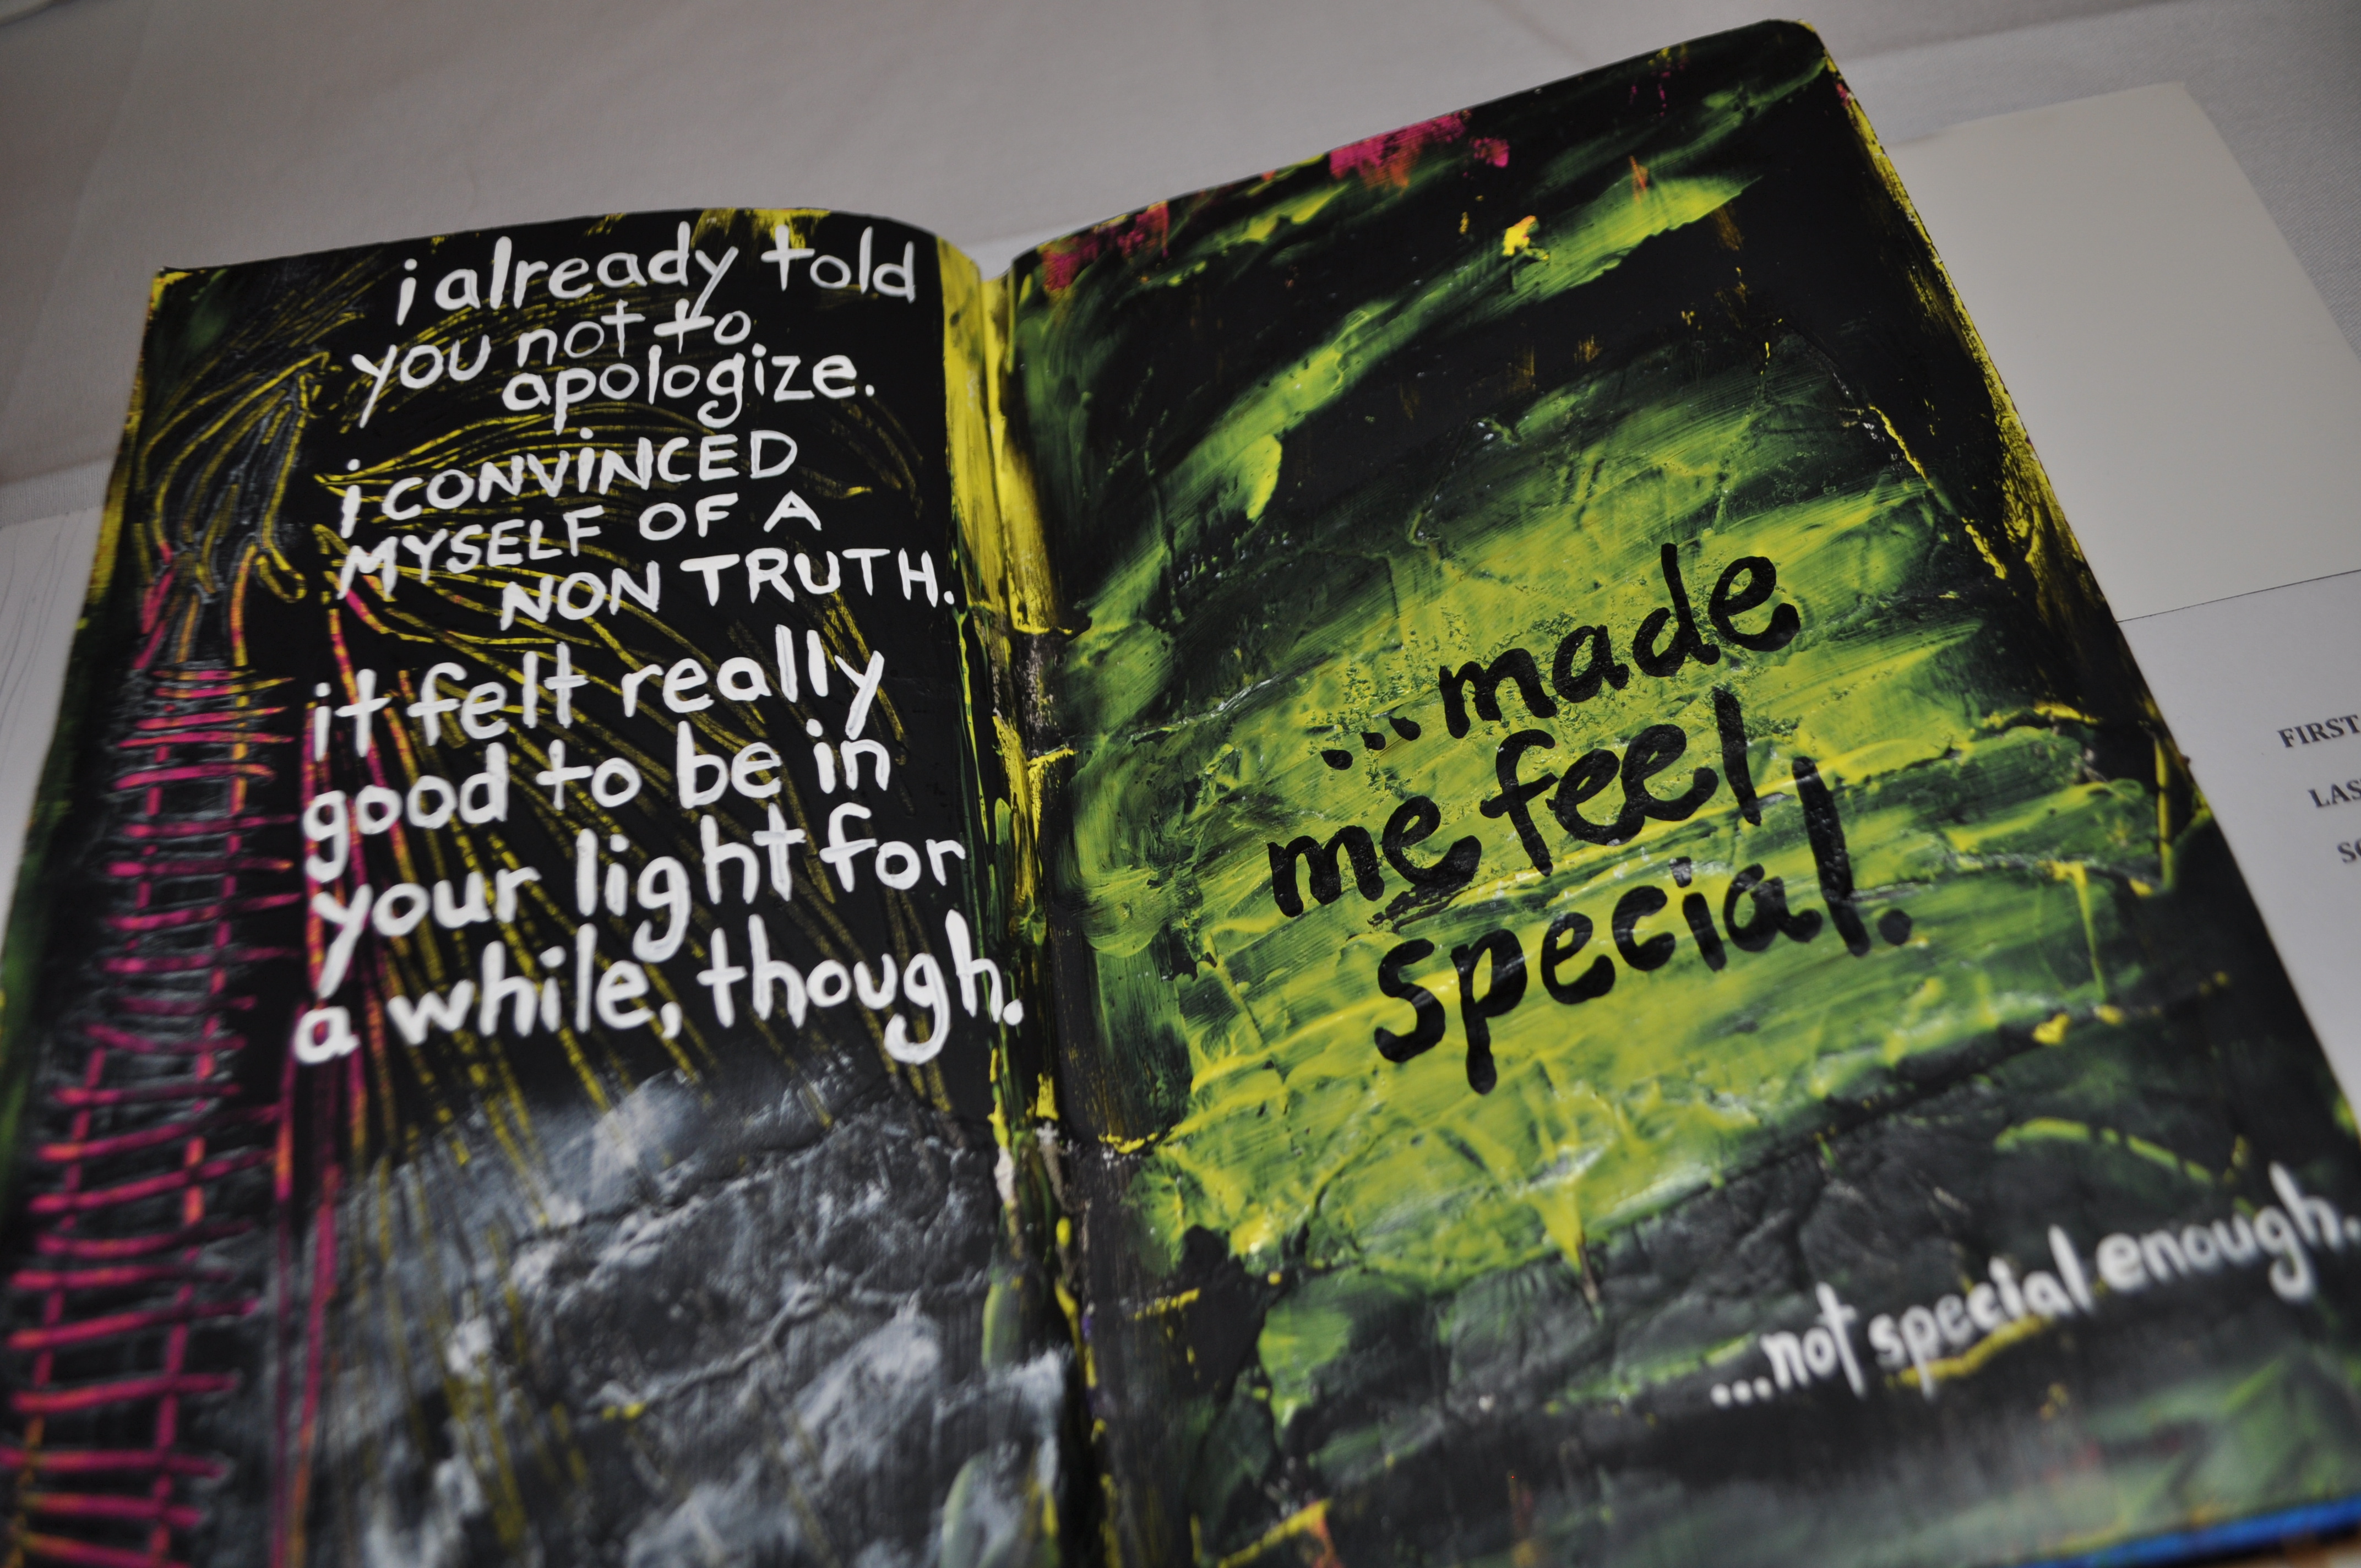 i already told
you not to
apologize.
i CONVINCED
MYSELF OF A
NON TRUTH.
it felt really
good to be in
your light for
a while, though.
...made
me feel
special.
...not special enough.
FIRST